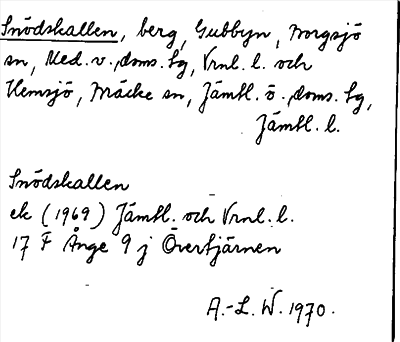 Snödskallen, berg, Gubbyn, Borgsjö
sn, Med. v. doms. sg, Vrnl. l. och
Hemsjö, Bräcke sn, Jämtl. ö. doms. sg,
Jämtl. l.
Snödskallen
ek (1969) Jämtl. och Vrnl. l.
17 F Ånge 9 j Övertjärnen
A.-L. W. 1970.